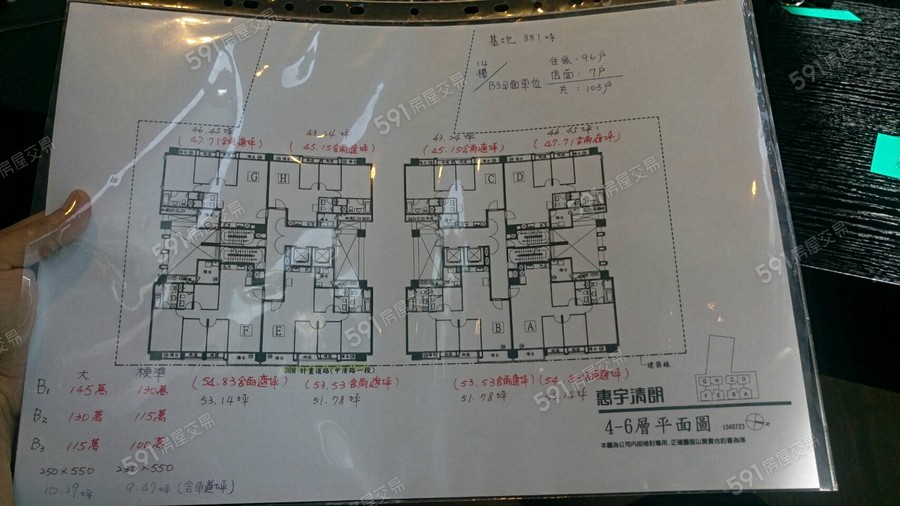 基地 881坪
14樓 住家:96戶
店面:7戶
B3平面車位 共:103戶
46.45坪 43.34坪 43.34坪 46.45坪
(47.71含雨遮坪) (45.15含雨遮坪) (45.15含雨遮坪) (47.71含雨遮坪)
G H C D
F E B A
30M 計畫道路(中清路一段) 建築線
(54.83含雨遮坪) (53.53含雨遮坪) (53.53含雨遮坪)
53.14坪 51.78坪 51.78坪
大 標準
B1 145萬 130萬
B2 130萬 115萬
B3 115萬 100萬
250×550 230×550
10.29坪 9.47坪(含車道坪)
G H C D
F E B A
惠宇清朗
4-6層平面圖 1040723
本圖為公司內部檢討專用,正確圖面以買賣合約書為準
591房屋交易